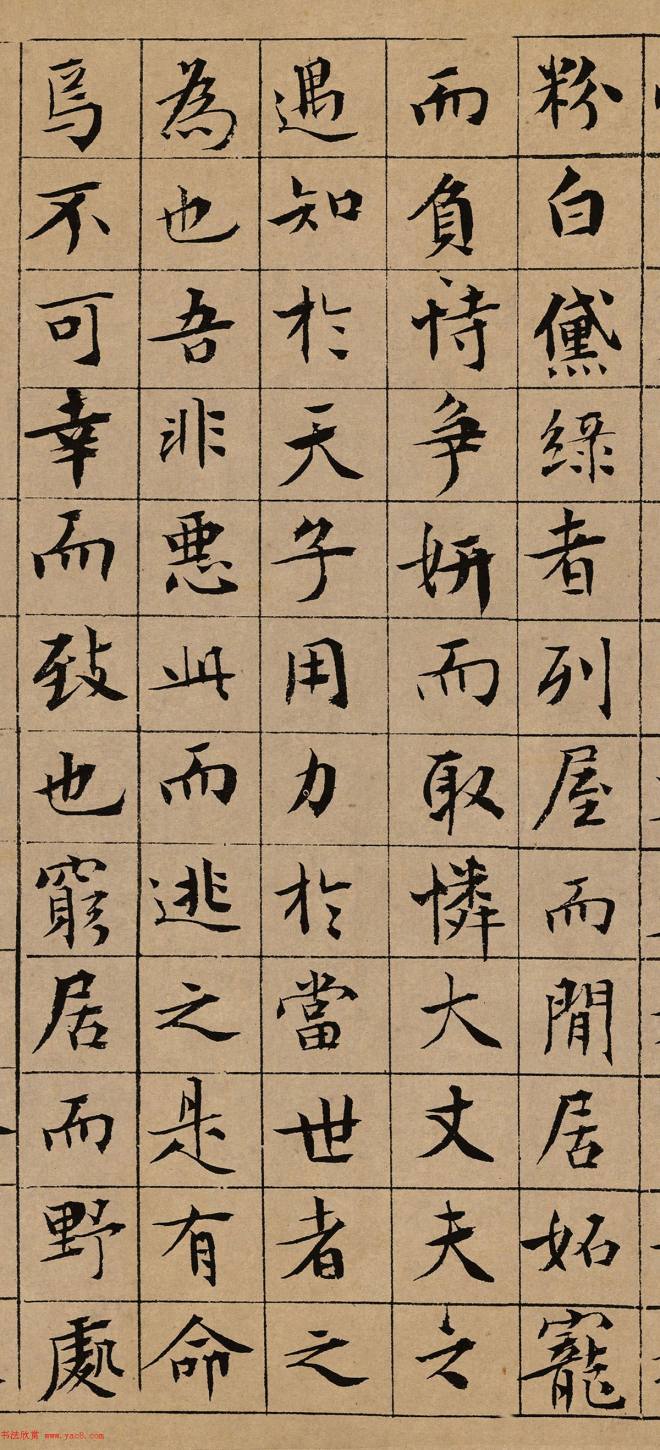 粉白黛綠者列屋而閒居妬寵
而負恃爭妍而取憐大丈夫之
遇知於天子用力於當世者之
為也吾非惡此而逃之是有命
焉不可幸而致也窮居而野處
书法欣赏 www.yac8.com